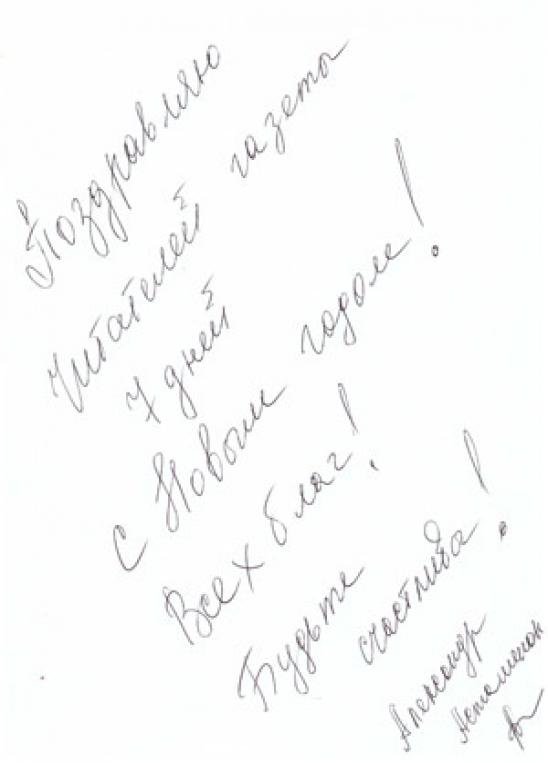 Поздравляю
читателей газеты
7 дней
с Новым годом!
Всех благ!
Будьте счастливы!
Александр